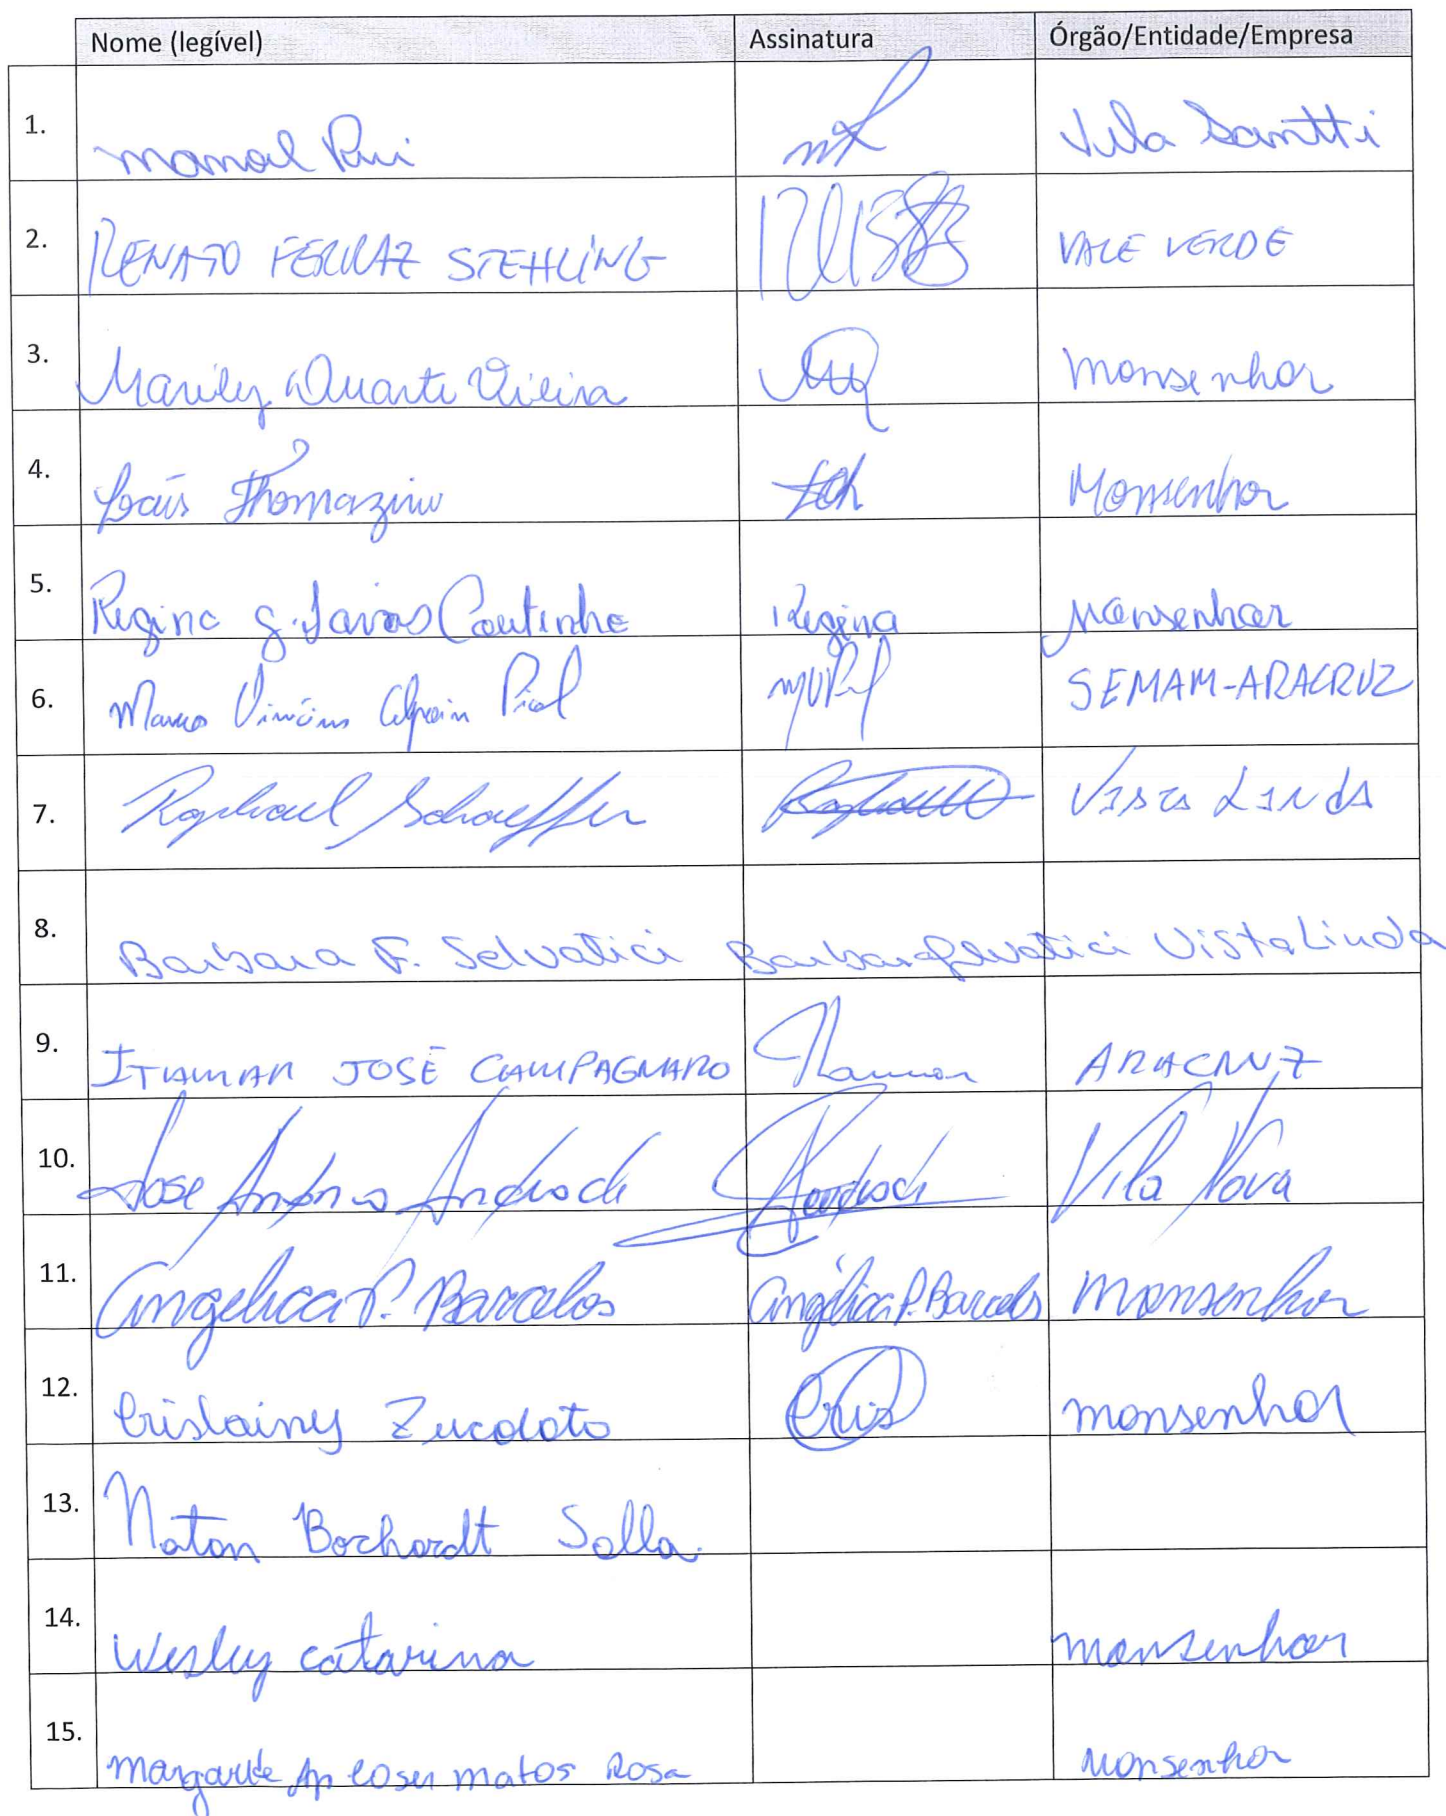 Nome (legível) Assinatura Órgão/Entidade/Empresa
1. manoel Rui Vila Santti
2. RENATO FERRAZ STEHLING VALE VERDE
3. Mariley Duarte Vieira monsenhor
4. Laís Thomazini Monsenhor
5. Regina G. Coutinho Regina Monsenhor
6. Marco Vinicius Piol SEMAM-ARACRUZ
7. Raphael Schaeffer VISTA LINDA
8. Barbara F. Selvatici Barbara Selvatici Vista Linda
9. ITAMAR JOSÉ CAMPAGNARO Itamar ARACRUZ
10. Jose Antonio Andrade Andrade Vila Nova
11. Angelica P. Barcelos Angélica P. Barcelos monsenhor
12. Crislainy Zucoloto Cris monsenhor
13. Natan Borhardt Solla.
14. Wesley catarina monsenhor
15. margarete Ap loser matos Rosa monsenhor